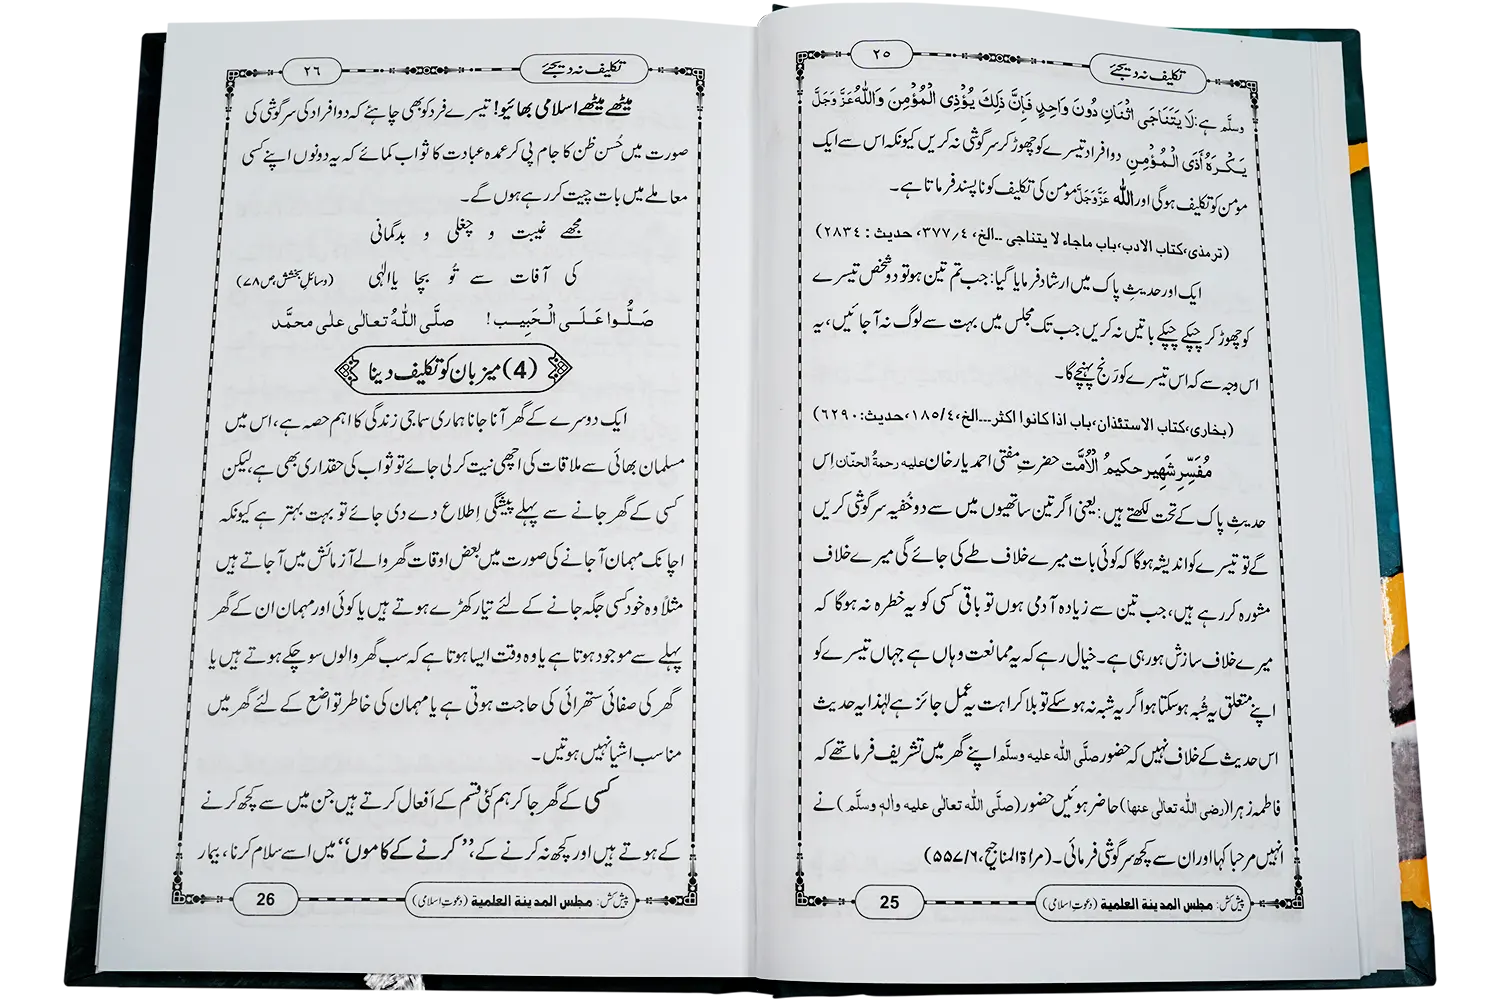 تکلیف نہ دیجئے
۲۵
وسلَّم ہے: لَا یَتَنَاجَی اثْنَانِ دُونَ وَاحِدٍ فَاِنَّ ذٰلِکَ یُؤْذِی الْمُؤْمِنَ وَاللّٰہُ عَزَّ وَجَلَّ
یَکْرَہُ أَذَی الْمُؤْمِنِ دو افراد تیسرے کو چھوڑ کر سرگوشی نہ کریں کیونکہ اس سے ایک
مومن کو تکلیف ہوگی اور اللّٰہ عَزَّوَجَلَّ مومن کی تکلیف کو ناپسند فرماتا ہے۔
(ترمذی، کتاب الادب، باب ماجاء لا یتناجی ..الخ، ۴/۳۷۷، حدیث: ۲۸۳۴)
ایک اور حدیثِ پاک میں ارشاد فرمایا گیا: جب تم تین ہو تو دو شخص تیسرے
کو چھوڑ کر چپکے چپکے باتیں نہ کریں جب تک مجلس میں بہت سے لوگ نہ آجائیں، یہ
اس وجہ سے کہ اس تیسرے کو رَنج پہنچے گا۔
(بخاری، کتاب الاستئذان، باب اذا کانوا اکثر...الخ، ۴/۱۸۵، حدیث: ۶۲۹۰)
مُفَسِّرِ شَہِیر حکیمُ الْاُمَّت حضرتِ مفتی احمد یار خان علیہ رحمۃُ الحنّان اِس
حدیثِ پاک کے تحت لکھتے ہیں: یعنی اگر تین ساتھیوں میں سے دو خُفیہ سرگوشی کریں
گے تو تیسرے کو اندیشہ ہوگا کہ کوئی بات میرے خلاف طے کی جائے گی میرے خلاف
مشورہ کررہے ہیں، جب تین سے زیادہ آدمی ہوں تو باقی کسی کو یہ خطرہ نہ ہوگا کہ
میرے خلاف سازش ہورہی ہے۔ خیال رہے کہ یہ ممانعت وہاں ہے جہاں تیسرے کو
اپنے متعلق یہ شُبہ ہوسکتا ہو اگر یہ شبہ نہ ہوسکے تو بلا کراہت یہ عمل جائز ہے لہٰذا یہ حدیث
اس حدیث کے خلاف نہیں کہ حضور صلَّی اللّٰہ علیہ وسلَّم اپنے گھر میں تشریف فرماتھے کہ
فاطمہ زہرا (رضی اللّٰہ تعالٰی عنہا) حاضر ہوئیں حضور (صلَّی اللّٰہ تعالٰی علیہ واٰلہٖ وسلَّم) نے
انہیں مرحبا کہا اور ان سے کچھ سرگوشی فرمائی۔ (مراٰۃ المناجیح، ۶/۵۵۷)
پیش کش: مجلس المدینۃ العلمیۃ (دعوتِ اسلامی)
25
تکلیف نہ دیجئے
۲۶
میٹھے میٹھے اسلامی بھائیو! تیسرے فرد کو بھی چاہئے کہ دو افراد کی سرگوشی کی
صورت میں حُسنِ ظن کا جام پی کر عمدہ عبادت کا ثواب کمائے کہ یہ دونوں اپنے کسی
معاملے میں بات چیت کررہے ہوں گے۔
مجھے غیبت و چغلی و بدگمانی
کی آفات سے تُو بچا یاالٰہی (وسائلِ بخشش، ص۷۸)
صَلُّوا عَلَی الْحَبِیب! صلَّی اللّٰہُ تعالٰی علٰی محمَّد
(4) میزبان کو تکلیف دینا
ایک دوسرے کے گھر آنا جانا ہماری سماجی زندگی کا اہم حصہ ہے، اس میں
مسلمان بھائی سے ملاقات کی اچھی نیت کرلی جائے تو ثواب کی حقداری بھی ہے، لیکن
کسی کے گھر جانے سے پہلے پیشگی اِطلاع دے دی جائے تو بہت بہتر ہے کیونکہ
اچانک مہمان آجانے کی صورت میں بعض اوقات گھر والے آزمائش میں آجاتے ہیں
مثلاً وہ خود کسی جگہ جانے کے لئے تیار کھڑے ہوتے ہیں یا کوئی اور مہمان ان کے گھر
پہلے سے موجود ہوتا ہے یا وہ وقت ایسا ہوتا ہے کہ سب گھر والوں سوچکے ہوتے ہیں یا
گھر کی صفائی ستھرائی کی حاجت ہوتی ہے یا مہمان کی خاطر تواضع کے لئے گھر میں
مناسب اشیا نہیں ہوتیں۔
کسی کے گھر جاکر ہم کئی قسم کے اَفعال کرتے ہیں جن میں سے کچھ کرنے
کے ہوتے ہیں اور کچھ نہ کرنے کے، ”کرنے کے کاموں“ میں اسے سلام کرنا، بیمار
پیش کش: مجلس المدینۃ العلمیۃ (دعوتِ اسلامی)
26